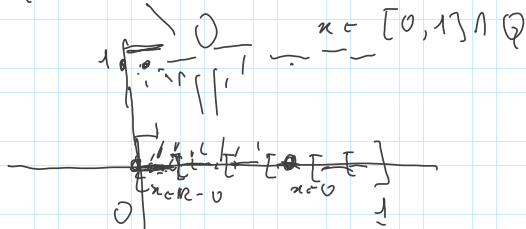 0 x ∈ [0,1] ∩ Q
1
[ [ [ [ [ ]
x ∈ R - Q x ∈ Q
0 1